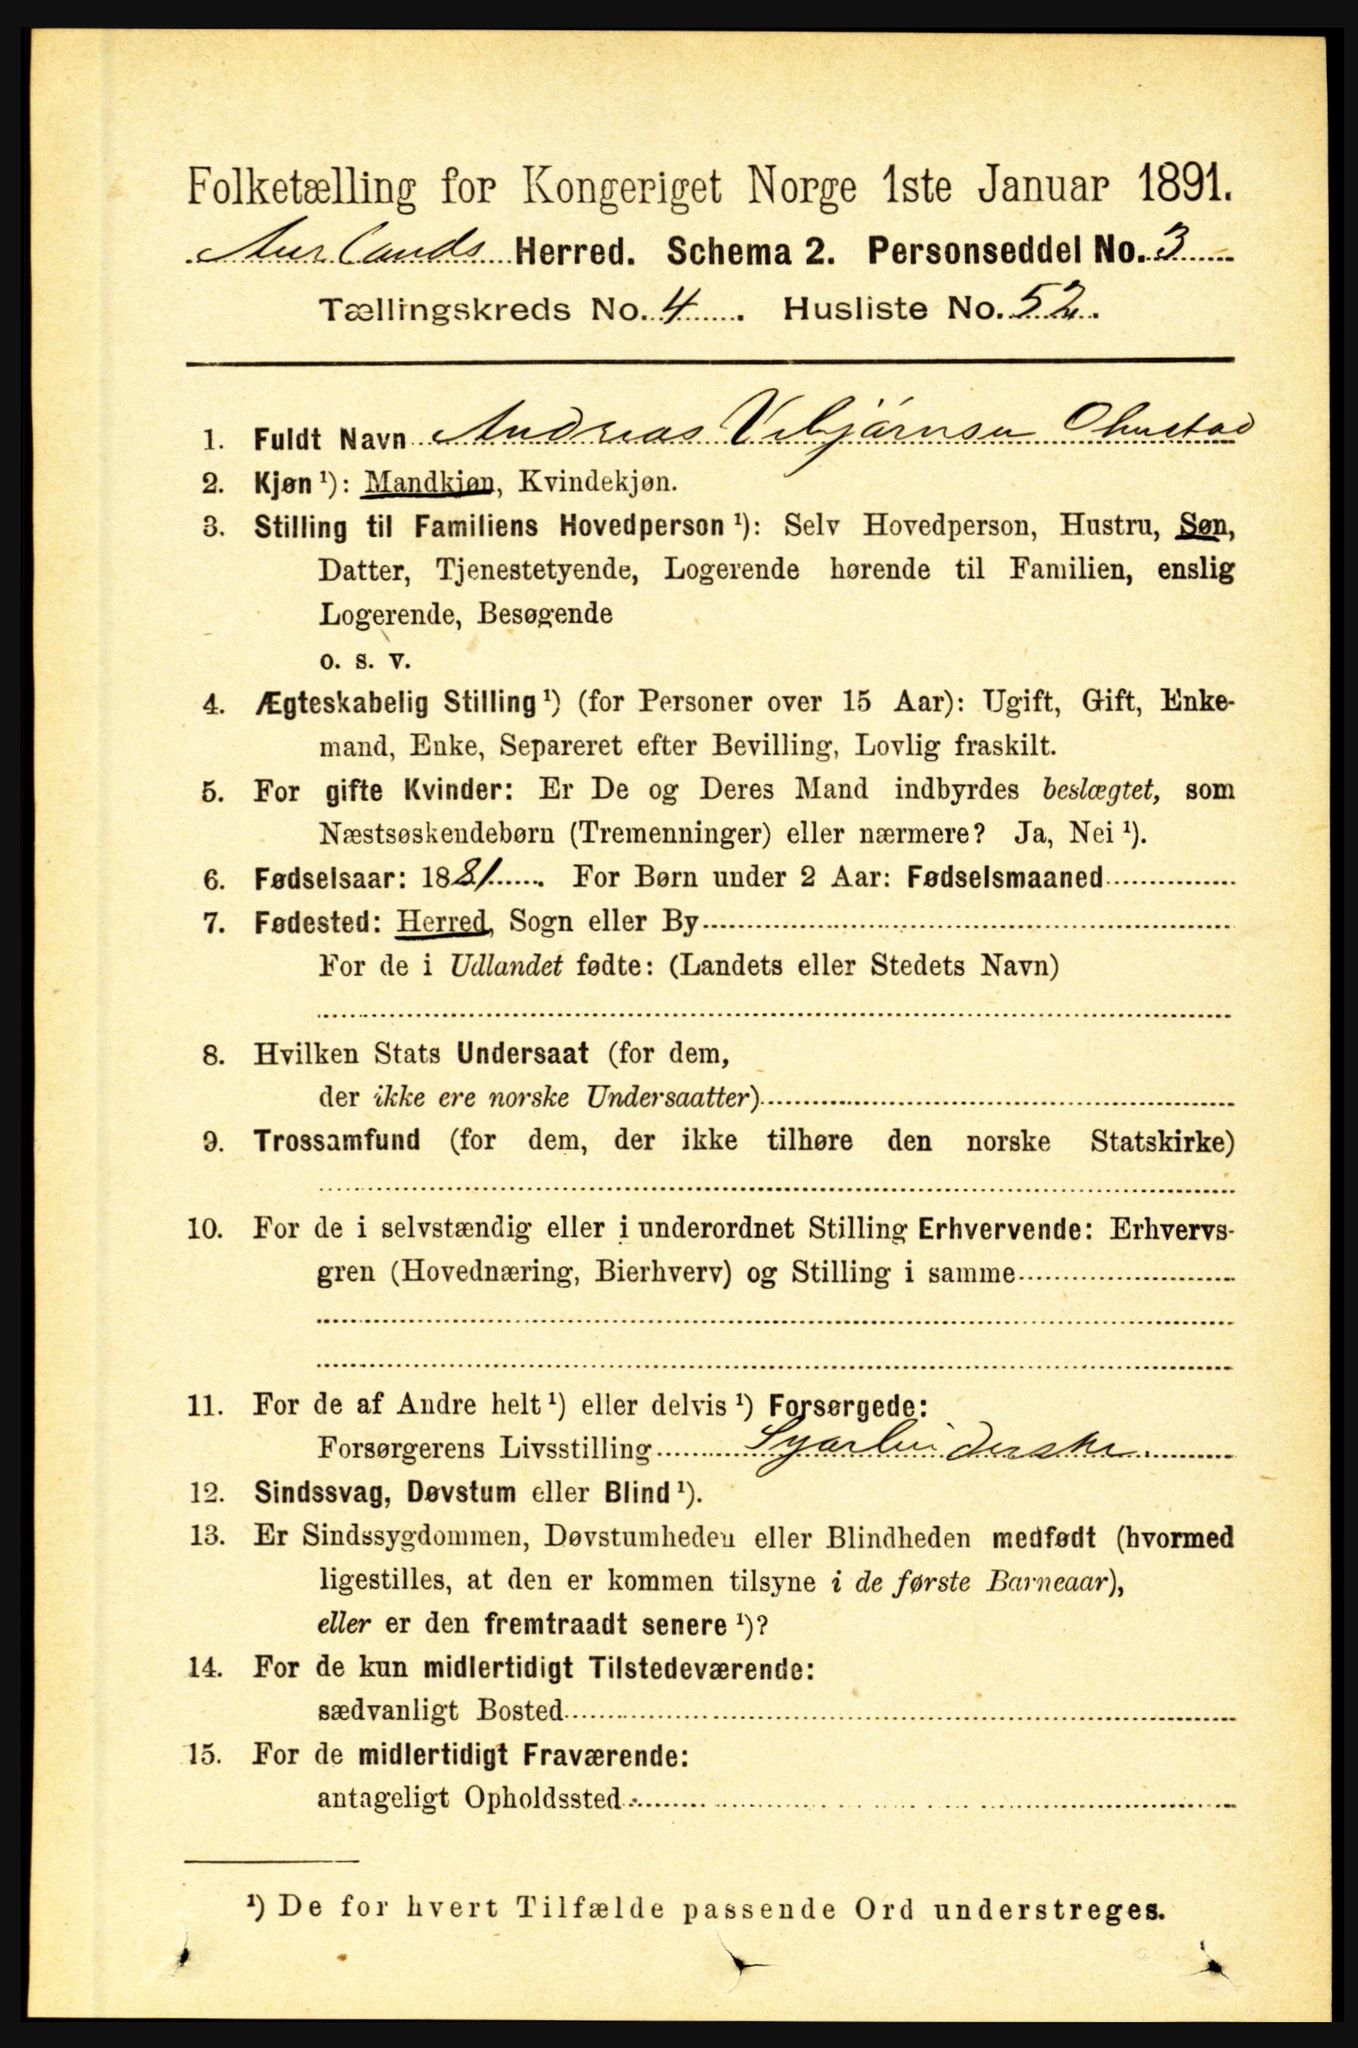 Folketælling for Kongeriget Norge 1ste Januar 1891.
Aurlands Herred. Schema 2. Personseddel No. 3
Tællingskreds No. 4. Husliste No. 52.
1. Fuldt Navn Andreas Vibjørnsen Ohnstad
2. Kjøn ¹): Mandkjøn, Kvindekjøn.
3. Stilling til Familiens Hovedperson ¹): Selv Hovedperson, Hustru, Søn,
Datter, Tjenestetyende, Logerende hørende til Familien, enslig
Logerende, Besøgende
o. s. v.
4. Ægteskabelig Stilling ¹) (for Personer over 15 Aar): Ugift, Gift, Enke-
mand, Enke, Separeret efter Bevilling, Lovlig fraskilt.
5. For gifte Kvinder: Er De og Deres Mand indbyrdes beslægtet, som
Næstsøskendebørn (Tremenninger) eller nærmere? Ja, Nei ¹).
6. Fødselsaar: 1881. For Børn under 2 Aar: Fødselsmaaned
7. Fødested: Herred, Sogn eller By
For de i Udlandet fødte: (Landets eller Stedets Navn)
8. Hvilken Stats Undersaat (for dem,
der ikke ere norske Undersaatter)
9. Trossamfund (for dem, der ikke tilhøre den norske Statskirke)
10. For de i selvstændig eller i underordnet Stilling Erhvervende: Erhvervs-
gren (Hovednæring, Bierhverv) og Stilling i samme
11. For de af Andre helt ¹) eller delvis ¹) Forsørgede:
Forsørgerens Livsstilling Syarbeiderske.
12. Sindssvag, Døvstum eller Blind ¹).
13. Er Sindssygdommen, Døvstumheden eller Blindheden medfødt (hvormed
ligestilles, at den er kommen tilsyne i de første Barneaar),
eller er den fremtraadt senere ¹)?
14. For de kun midlertidigt Tilstedeværende:
sædvanligt Bosted
15. For de midlertidigt Fraværende:
antageligt Opholdssted
¹) De for hvert Tilfælde passende Ord understreges.